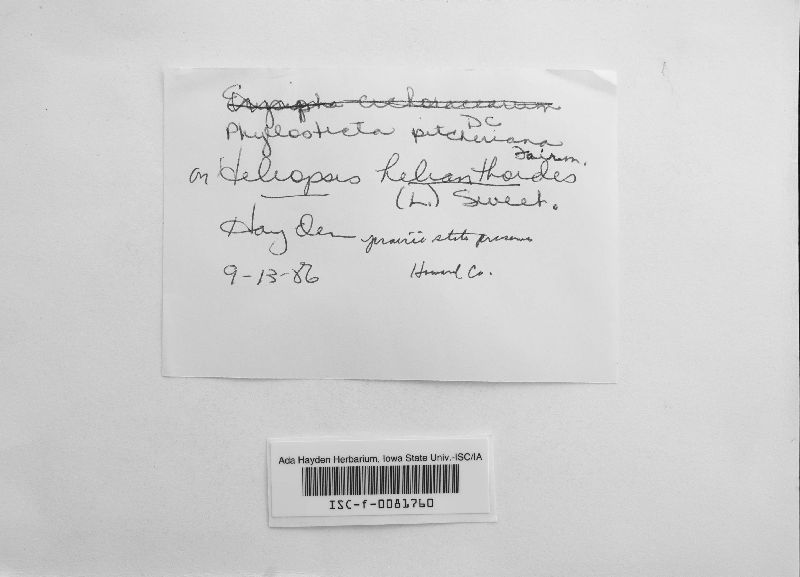 Erysiphe cichoracearum
DC
Phyllosticta pitcheriana
Fairm.
on Heliopsis helianthoides
(L.) Sweet.
Hayden prairie state preserve
9-13-86 Howard Co.
Ada Hayden Herbarium, Iowa State Univ.-ISC/IA
ISC-f-0081760